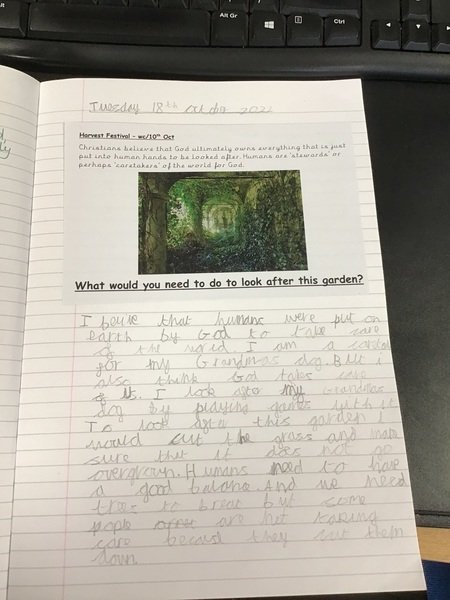 Alt Gr
Ctrl
Tuesday 18th October 2022
Harvest Festival - wc/10th Oct
Christians believe that God ultimately owns everything that is just
put into human hands to be looked after. Humans are 'stewards' or
perhaps 'caretakers' of the world for God.
What would you need to do to look after this garden?
I beive that humans were put on
earth by God to take care
of the world I am a
for my Grandmas dog. But i
also think God takes care
of us. I look after my Grandmas
dog by playing games with it
To look after this garden I
would cut the grass and make
sure that it does not go
overgrown. Humans need to have
a good balance. And we need
trees to breat but some
pople are not taking
care becaus they cut them
down.